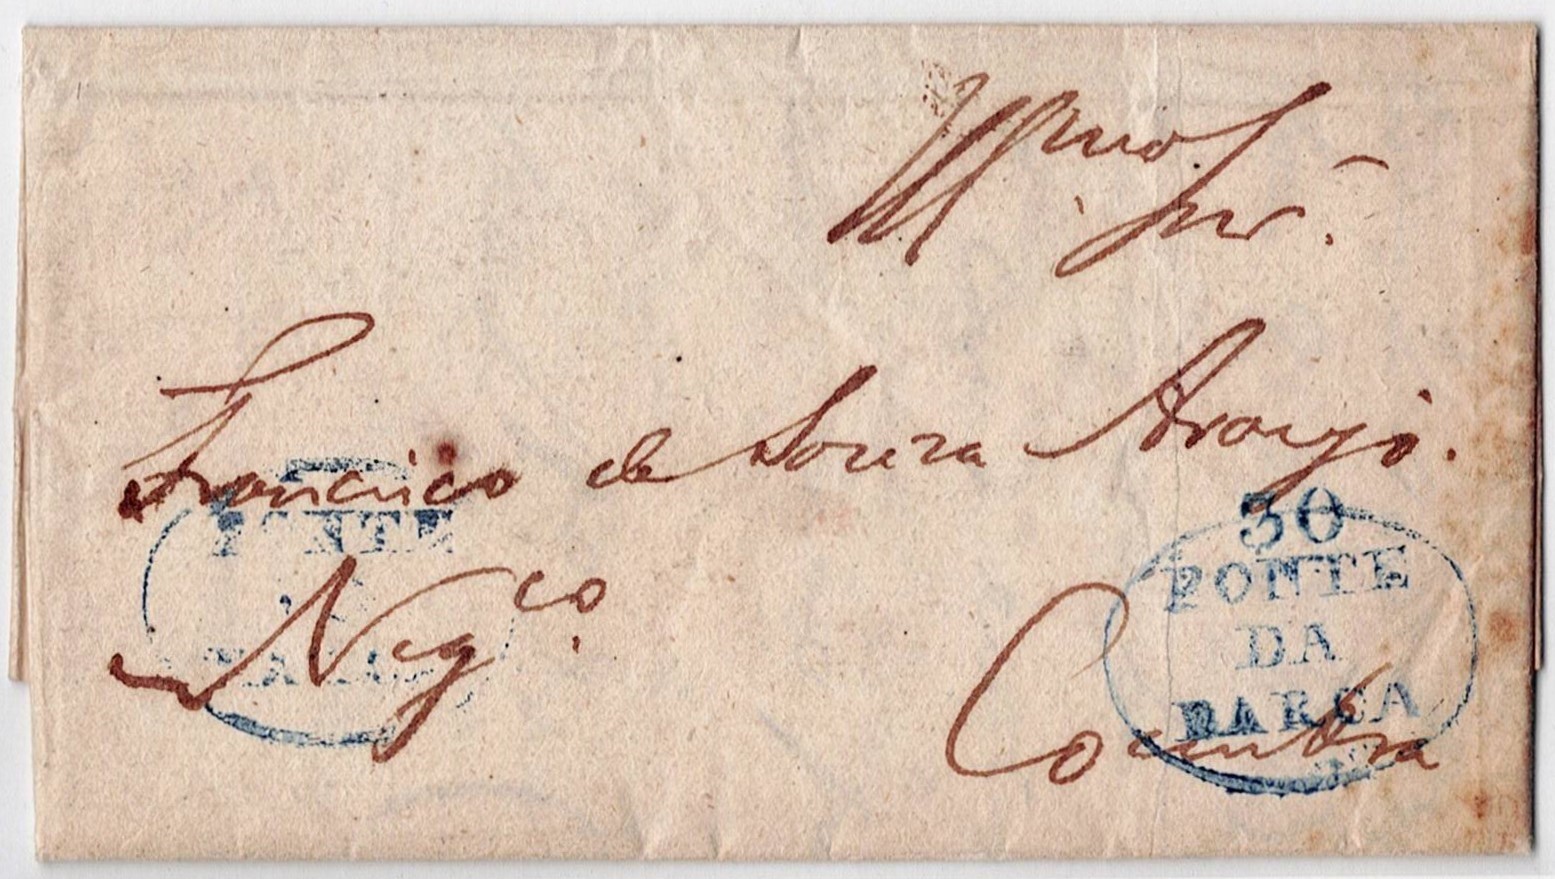 Illmo Snr.
Francisco de Souza Araujo.
PONTE
Negco.
30
PONTE
DA
BARCA
Coimbra